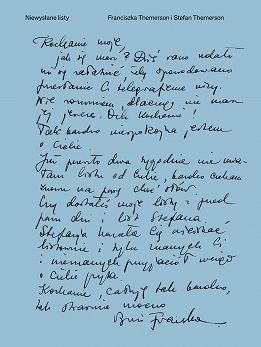 Niewysłane listy
Franciszka Themerson i Stefan Themerson
Kochanie moje,
jak się masz? Dziś rano udało
mi się załatwić, żeby spowodowano
przesłanie Ci telegraficznie wizy.
Nie rozumiem, dlaczego nie masz
jej jeszcze. Och kochanie!
Tak bardzo niespokojna jestem
o Ciebie.
Już ponto dwa tygodnie nie mia-
łam listu od Ciebie, bardzo czekam
znam na parę choć słów.
Czy dostałeś moje listy z przed
paru dni i list Stefana.
Stefania kazała Cię uściskać
listownie i tylu znanych Ci
i nieznanych przyjaciół wciąż
o Ciebie pyta.
Kochanie, całuję tak bardzo,
tak strasznie mocno
Twoja Franka